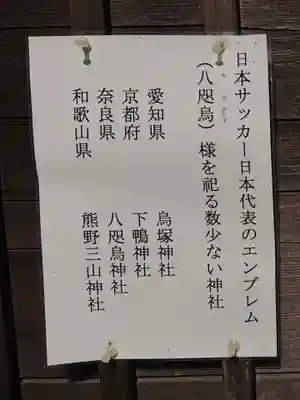 日本サッカー日本代表のエンブレム
（八咫烏）様を祀る数少ない神社
愛知県　烏塚神社
京都府　下鴨神社
奈良県　八咫烏神社
和歌山県　熊野三山神社